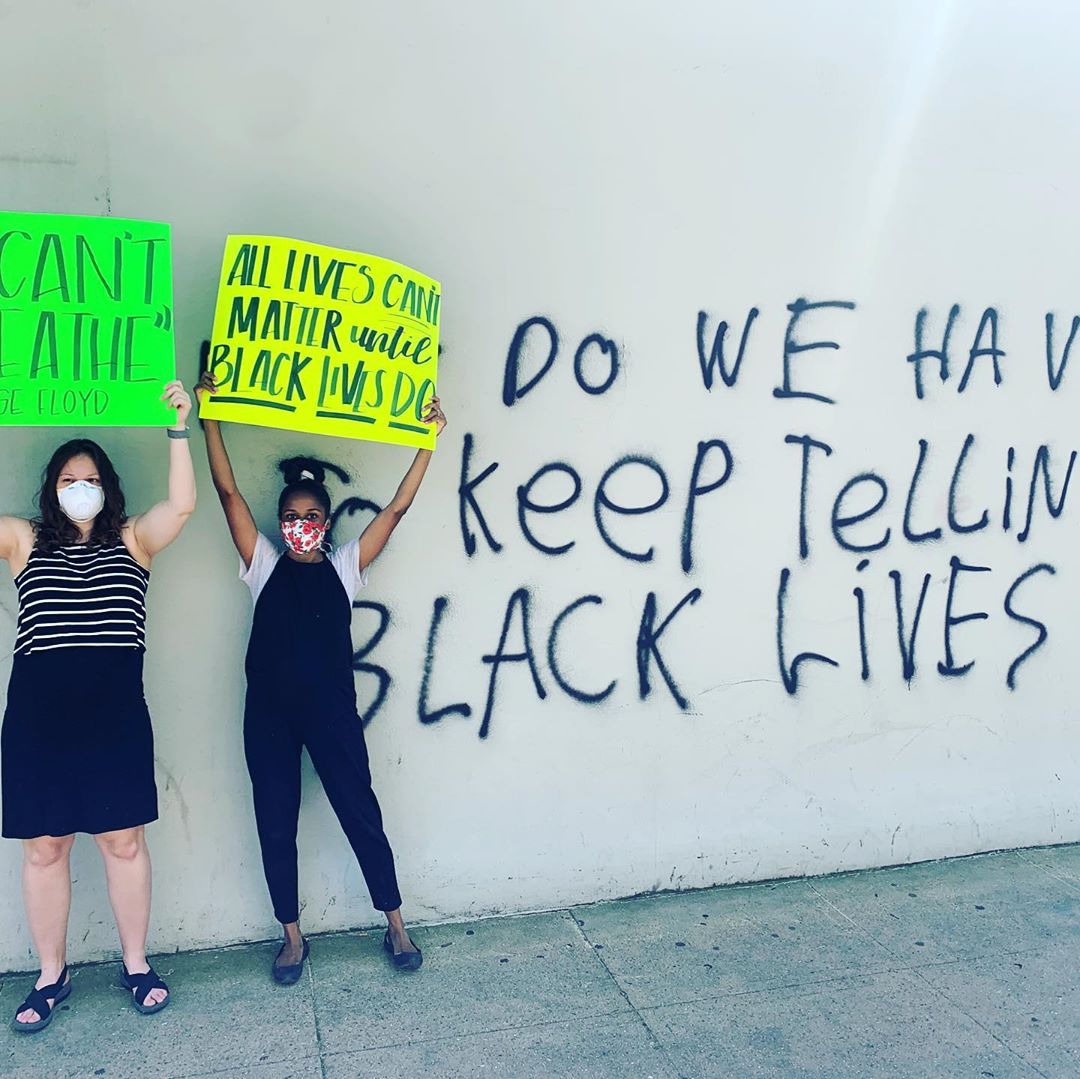 CAN'T
EATHE"
GE FLOYD
ALL LIVES CAN'T
MATTER until
BLACK LIVES DO
DO WE HAV
KEEP TELLIN
BLACK LIVES